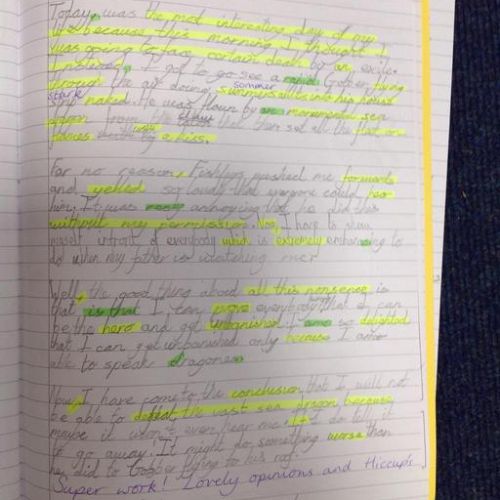 Today, was the most interesting day of my
life because this morning I thought I
was going to face certain death by an exile.
Instead, I got to go see a Gobber flying
through the air doing summersaults into his house
sommer
stark
naked. He was flown by an monumental sea
dragon from the that then set all the fleet on
For no reason, Fishlegs pushed me forwards
and yelled so loudly that everyone could hear
him. It was really annoying that he did this
without my permission. Now, I have to show
myself infront of everybody which is extremely embarrasing to
do when my father is watching me!
Well, the good thing about all this nonsense is
that is that I can prove everybody that I can
be the hero and get unbanished. I am so delighted
that I can get unbanished only because I am
able to speak dragonese.
Now, I have come to the conclusion that I will not
be able to defeat the vast sea dragon because
maybe it won't even hear me. If I do tell it
to go away. It might do something worse than
he did to Gobber flying to his roof.
Super work! Lovely opinions and Hiccups